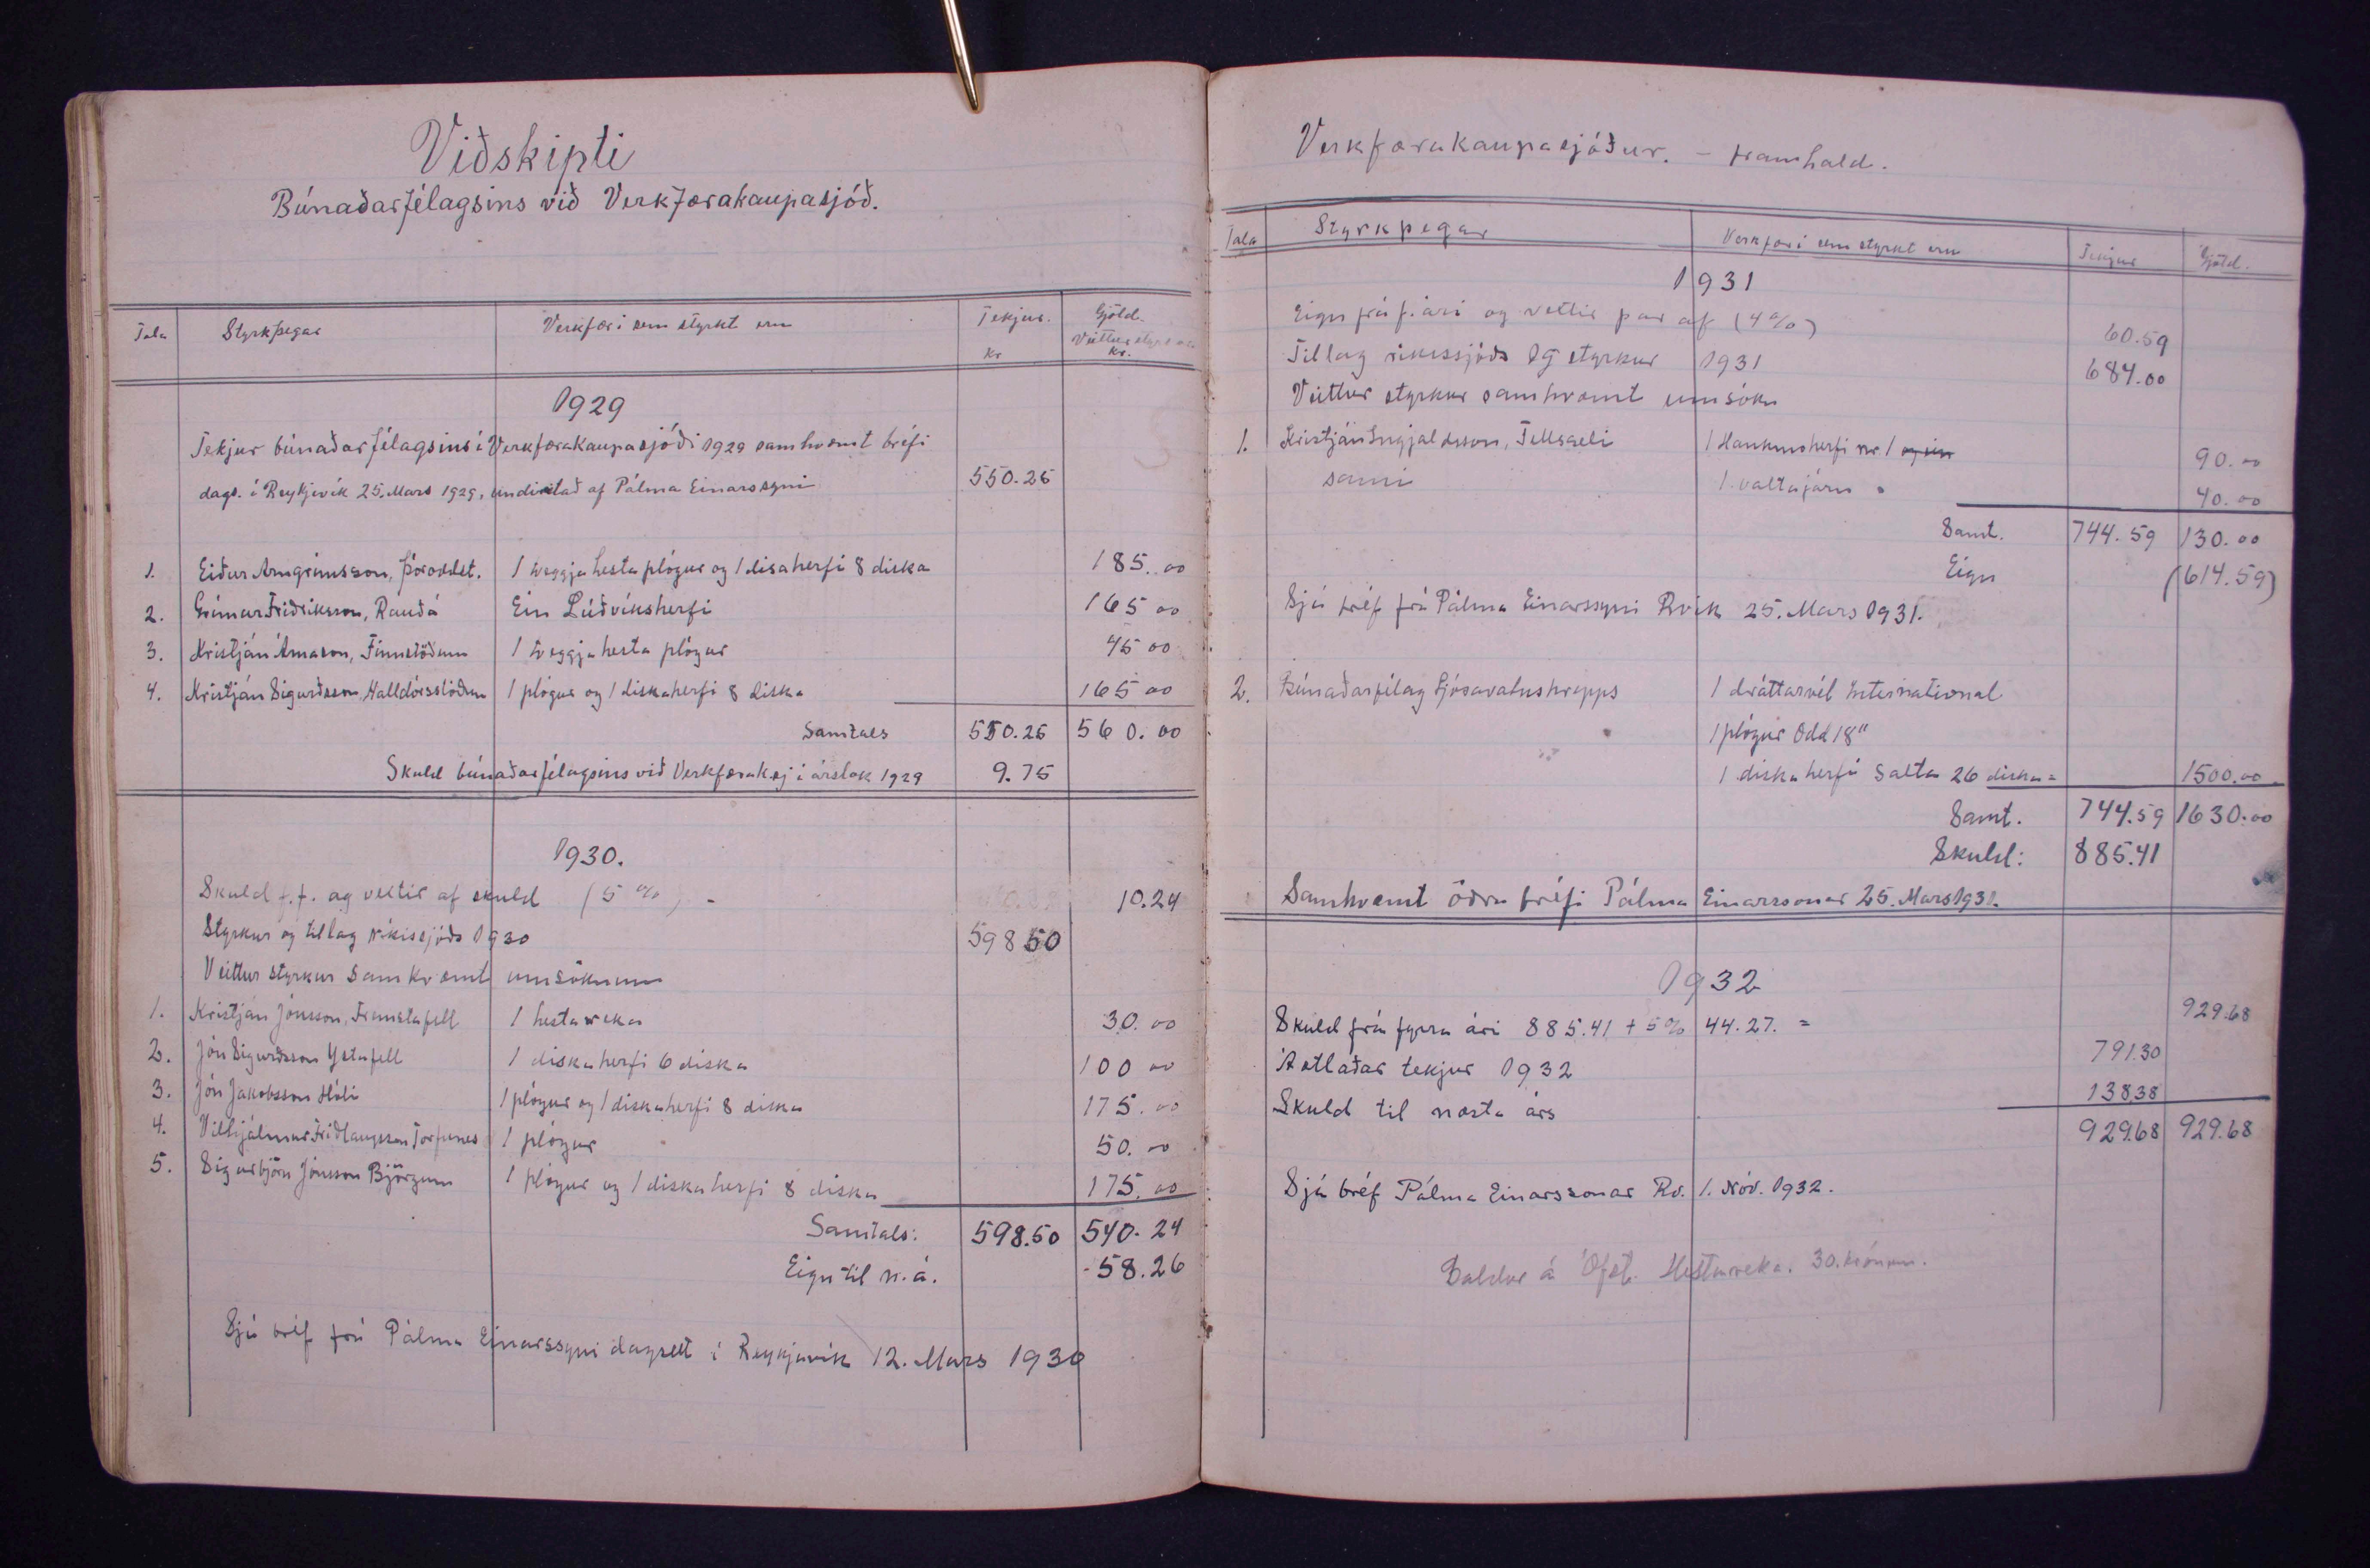 Viðskipti
Búnaðarfélagsins við Verkfærakaupasjóð.
Tala Styrkþegar Verkfæri sem styrkt eru Tekjur. kr Gjöld. Veittur styrkur kr.
1929
Tekjur búnaðarfélagsins í Verkfærakaupasjóði 1929 samkvæmt bréfi
dags. í Reykjavík 25. Mars 1929, undirritað af Pálma Einarssyni 550.25
1. Eiður Arngrímsson, Þóroddst. 1 tveggja hesta plógur og 1 disaherfi 8 diska 185.00
2. Grímur Friðriksson, Rauðá Ein Lúðvíksherfi 165 00
3. Kristján Árnason, Finnstöðum 1 tveggja hesta plógur 45 00
4. Kristján Sigurðsson, Halldórsstöðum 1 plógur og 1 diskaherfi 8 diska 165 00
Samtals 550.25 560.00
Skuld búnaðarfélagsins við Verkfærakasj í árslok 1929 9.75
1930.
Skuld f.f. og vextir af skuld (5 %) - 10.24
Styrkur og tillag ríkissjóðs 1930 598 50
Veittur styrkur samkvæmt umsóknum
1. Kristján Jónsson, Fremstafell 1 hestareka 30.00
2. Jón Sigurðsson Ystafell 1 diskaherfi 6 diska 100 00
3. Jón Jakobsson Hóli 1 plógur og 1 diskaherfi 8 diska 175.00
4. Vilhjálmur Friðlaugsson Torfunes 1 plógur 50.00
5. Sigurbjörn Jónsson Björgum 1 plógur og 1 diskaherfi 8 diska 175.00
Samtals: 598.50 540.24
Eign til n.á. 58.26
Sjá bréf frá Pálma Einarssyni dagsett í Reykjavík 12. Mars 1930
Verkfærakaupasjóður. - framhald.
Tala Styrkþegar Verkfæri sem styrkt eru Tekjur Gjöld.
1931
Eign frá f. ári og vextir þar af (4%) 60.59
Tillag ríkissjóðs og styrkur 1931 684.00
Veittur styrkur samkvæmt umsókn
1. Kristján Ingjaldsson, Fellsseli 1 Hankmoherfi nr 1 90.00
sami 1. valtajárn 40.00
Samt. 744.59 130.00
Eign (614.59)
Sjá bréf frá Pálma Einarssyni Rvík 25. Mars 1931.
2. Búnaðarfélag Ljósavatnshrepps 1 dráttarvél International
1 plógur Odd 18"
1 diskaherfi Salta 26 diska = 1500.00
Samt. 744.59 1630.00
Skuld: 885.41
Samkvæmt öðru bréfi Pálma Einarssonar 25. Mars 1931.
1932
Skuld frá fyrra ári 885.41 + 5% 44.27. = 929.68
Áætlaðar tekjur 1932 791.30
Skuld til næsta árs 138.38
929.68 929.68
Sjá bréf Pálma Einarssonar Rv. 1. Nóv. 1932.
Baldur á Ófst. Hestareka. 30. krónur.